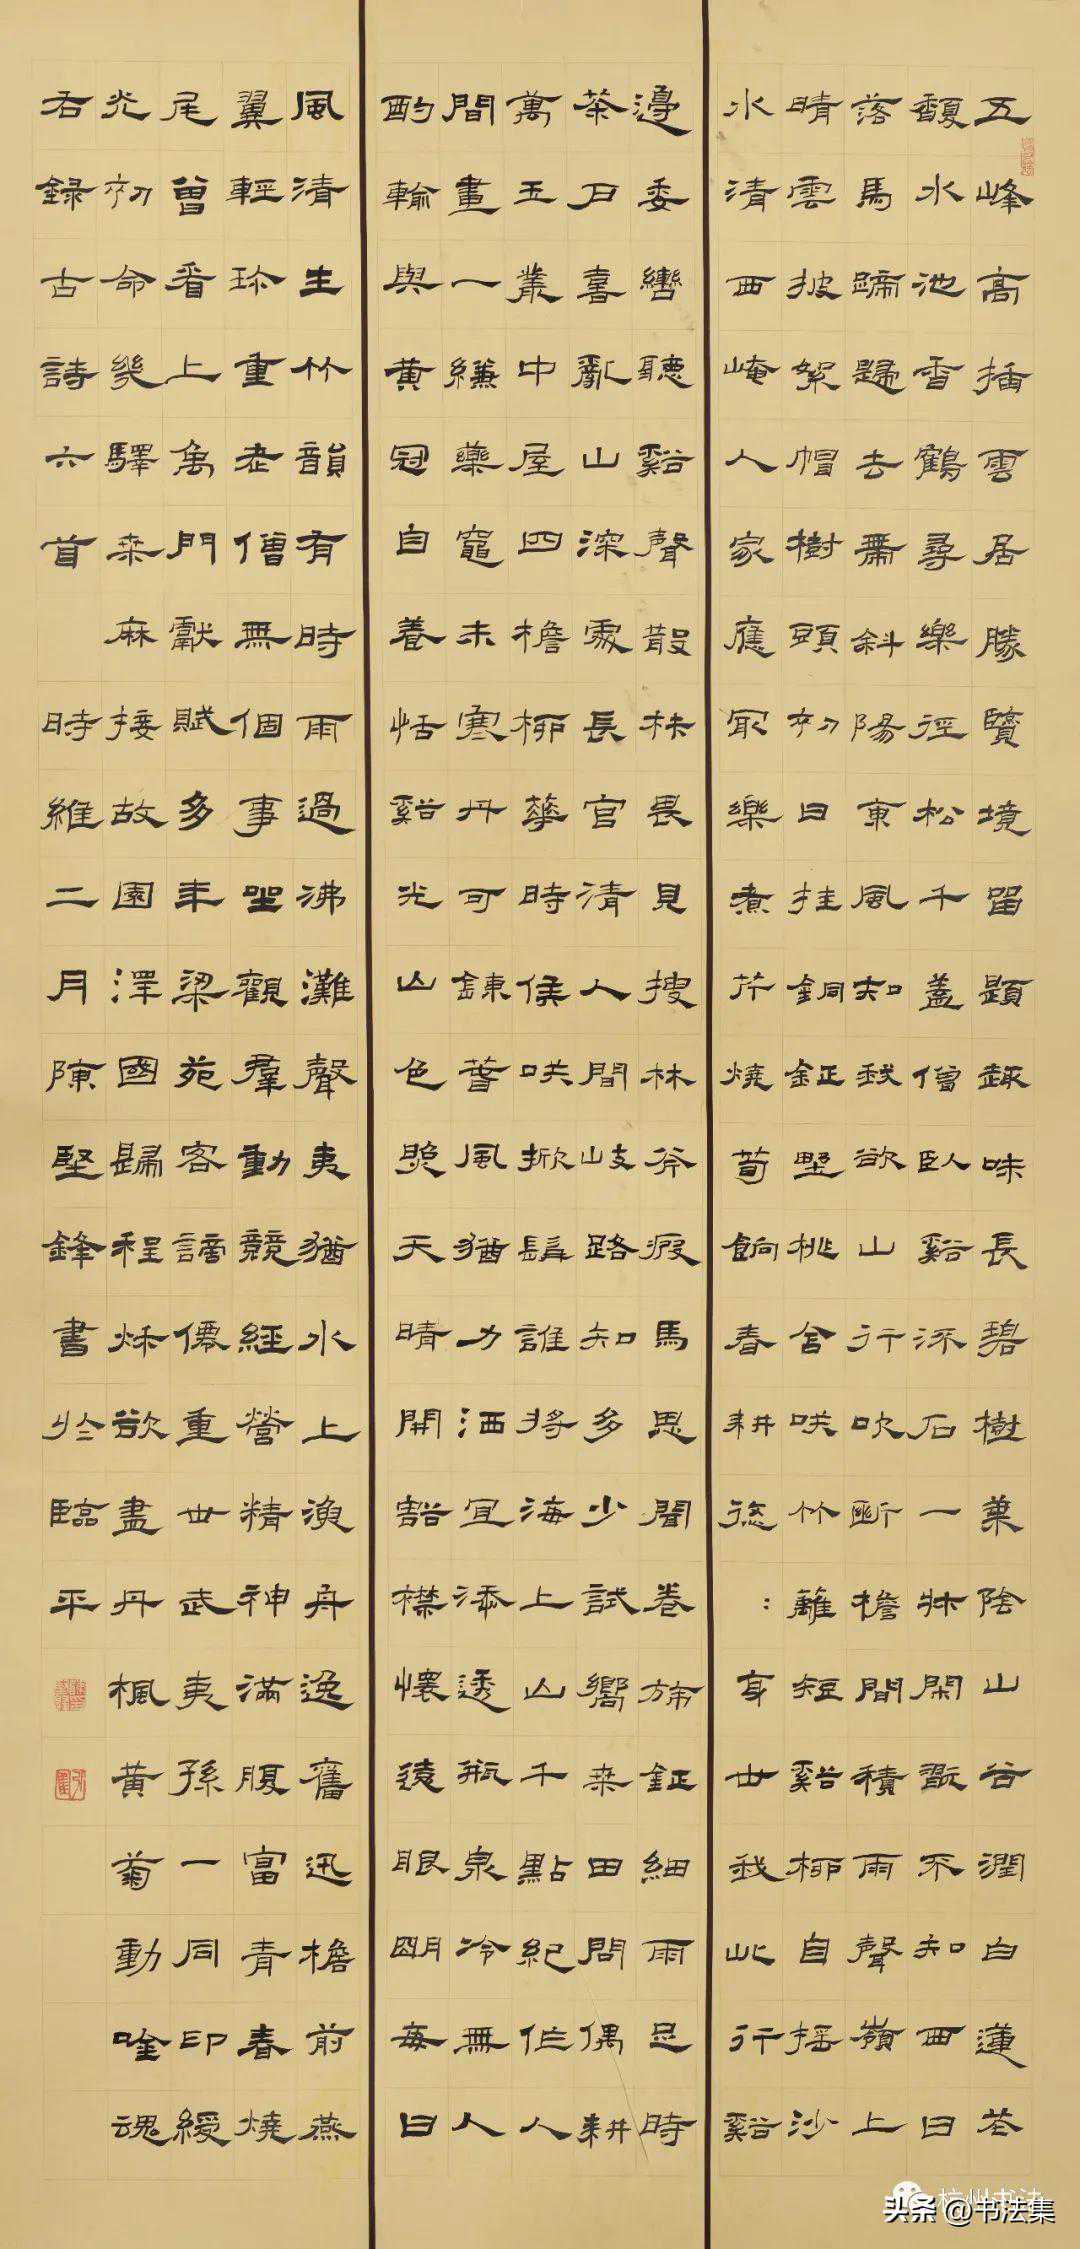 五峰高插雲居勝覽境留題趣味長碧樹葉陰山谷潤白蓮花
馥水池香鶴尋樂徑松千蓋僧臥谿流石一牀閑翫不知西日
落馬蹄歸去帶斜陽東風知我欲山行吹斷檐間積雨聲嶺上
晴雲披絮帽樹頭初日挂銅鉦野桃含笑竹籬短谿柳自搖沙
水清西崦人家應最樂煮芹燒筍餉春耕後：身世我此行谿
邊委轡聽谿聲散材畏見搜林斧疲馬思聞卷旆鉦細雨足時
茶戶喜亂山深處長官清人間岐路知多少試嚮桒田問偶耕
萬玉叢中屋四檐柳華時候笑掀髯誰將海上山千點紀作人
間畫一縑藥竈未寒丹可鍊暮風猶力洒宜添透瓶泉冷無人
酌輸與黃冠自養恬谿光山色照天晴開豁襟懷遠眼明每日
風清生竹韻有時雨過沸灘聲夷猶水上漁舟逸舊迅檐前燕
翼輕珎重老僧無個事坐觀羣動競經營精神滿腹富青春燒
尾曾看上禹門獻賦多年梁苑客諦儒重世武夷孫一同印綬
炎初命幾驛桒麻接故園澤國歸程秋欲盡丹楓黃菊動唫魂
右錄古詩六首
時維二月陳堅鋒書於臨平
杭州书法
头条 @书法集